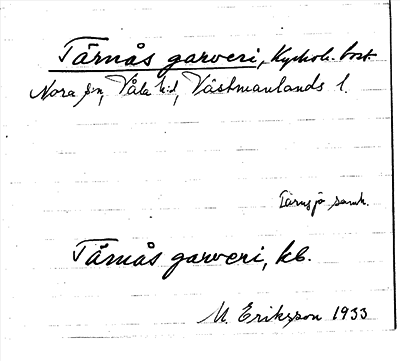 Tärnås garveri, Kyrkoh. bost.
Nora sn, Våla hd, Västmanlands l.
Tärnsjö samh.
Tärnås garveri, kb.
M. Eriksson 1933